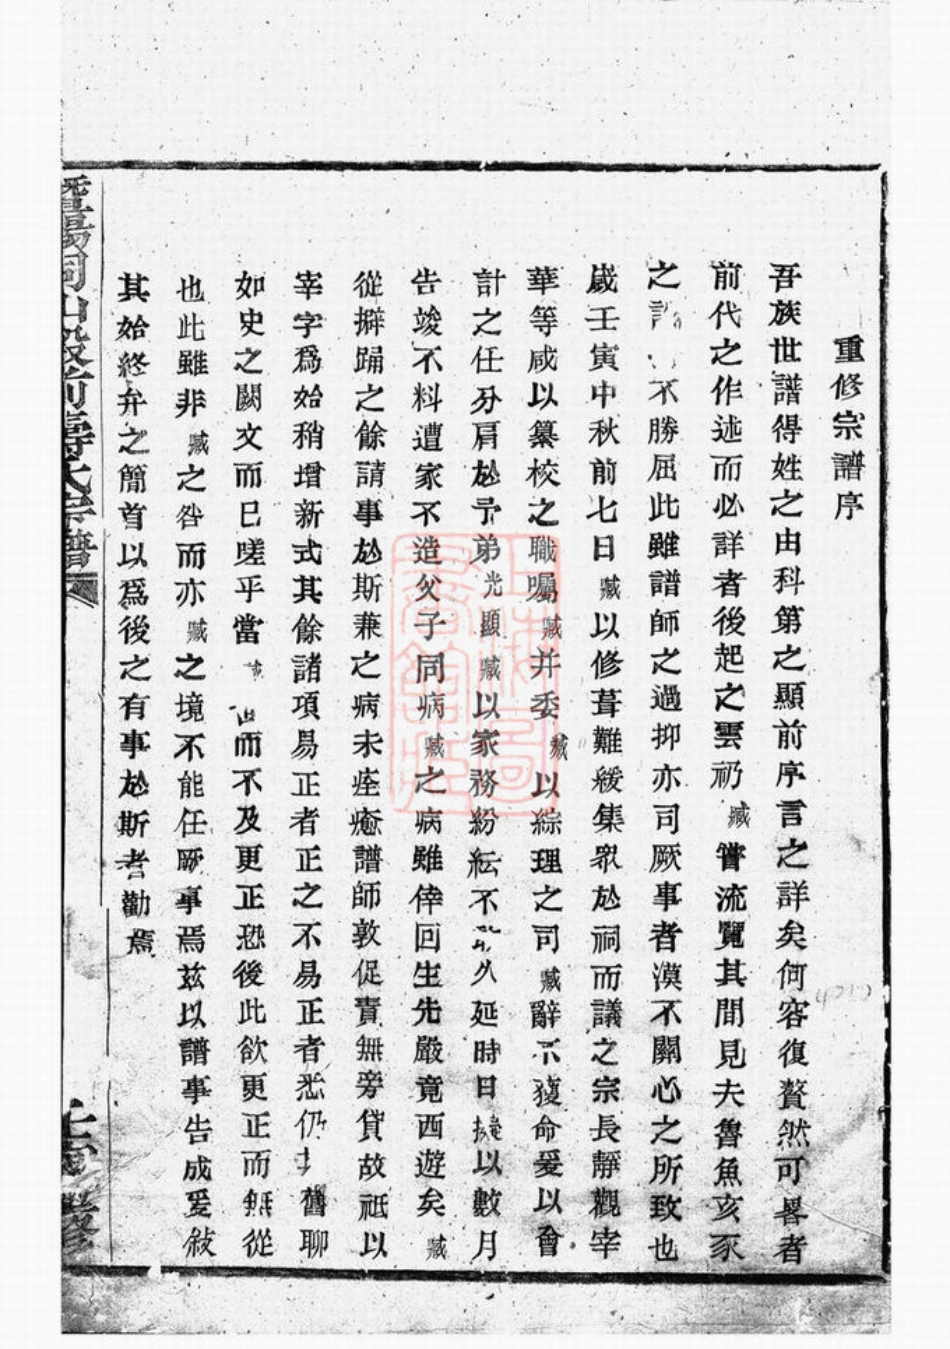 重修宗譜序
吾族世譜得姓之由科第之顯前序言之詳矣何容復贅然可畧者
前代之作述而必詳者後起之雲礽臧嘗流覽其間見夫魯魚亥豕
之不勝屈此雖譜師之過抑亦司厥事者漠不關心之所致也
歲壬寅中秋前七日臧以修葺難緩集眾於祠而議之宗長靜觀宰
華等咸以纂校之職囑臧并委臧以綜理之司臧辭不獲命爰以會
計之任分肩於予弟光顯臧以家務紛紜不久延時日擬以數月
告竣不料遭家不造父子同病臧之病雖倖回生先嚴竟西遊矣臧
從擗踊之餘請事於斯兼之病未痊癒譜師敦促責無旁貸故祗以
宰字爲始稍增新式其餘諸項易正者正之不易正者悉仍舊聊
如史之闕文而已嗟乎當而不及更正恐後此欲更正而無從
也此雖非臧之咎而亦臧之境不能任厥事焉兹以譜事告成爰敍
其始終弁之簡首以爲後之有事於斯者勸焉
暨陽同山殿前壽氏宗譜
壬寅重修